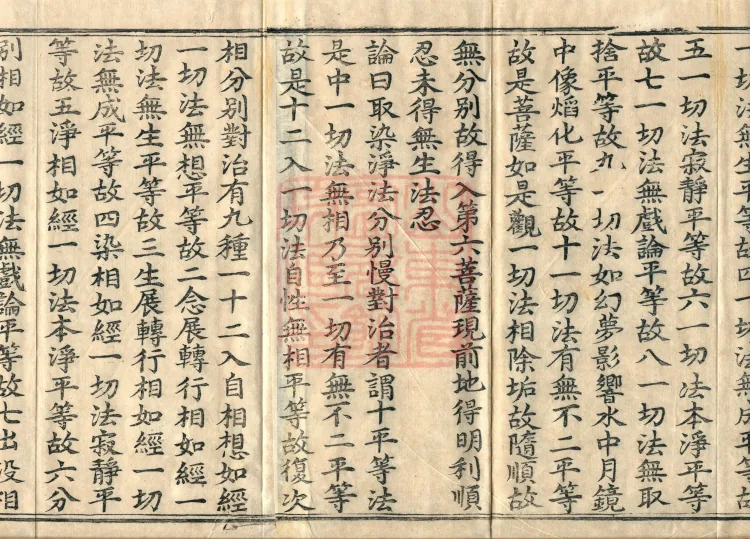 一切法無生平等故四一切法無成平等故
五一切法寂靜平等故六一切法本淨平等
故七一切法無戲論平等故八一切法無取
捨平等故九一切法如幻夢影響水中月鏡
中像熖化平等故十一切法有無不二平等
故是菩薩如是觀一切法相除垢故隨順故
無分別故得入第六菩薩現前地得明利順
忍未得無生法忍
論曰取染淨法分別慢對治者謂十平等法
是中一切法無相乃至一切有無不二平等
故是十二入一切法自性無相平等故復次
相分別對治有九種一十二入自相想如經
一切法無想平等故二念展轉行相如經一
切法無生平等故三生展轉行相如經一切
法無成平等故四染相如經一切法寂靜平
等故五淨相如經一切法本淨平等故六分
別相如經一切法無戲論平等故七出没相